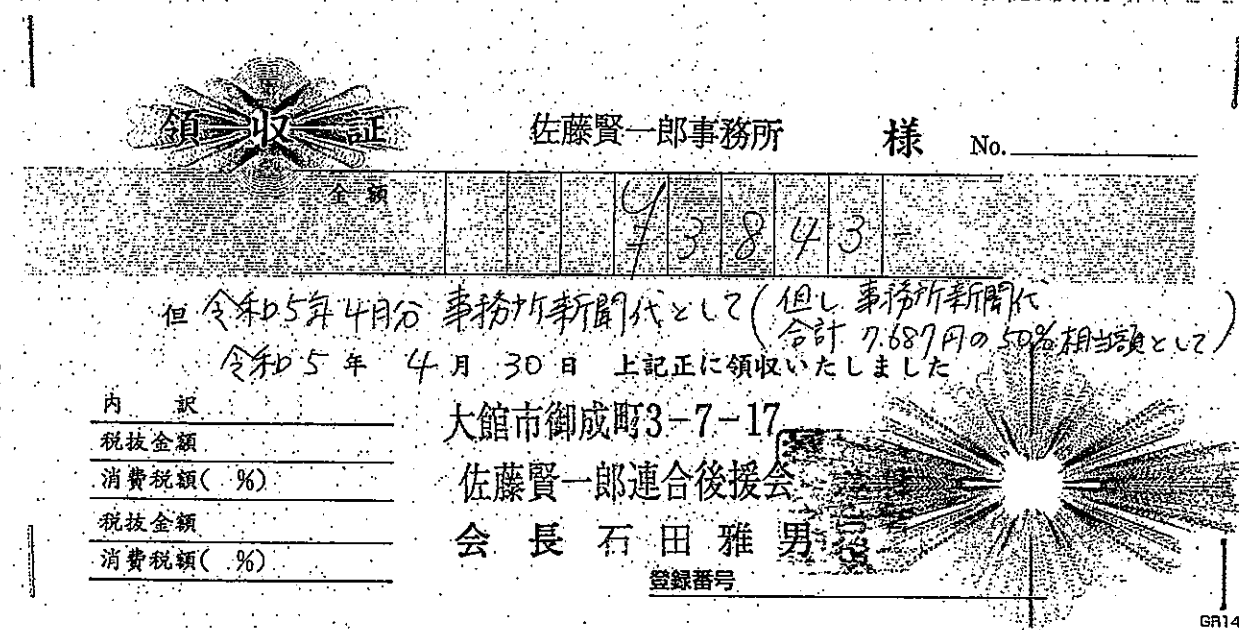 領収証
佐藤賢一郎事務所 様 No.
金額 ¥3843-
但 令和5年4月分 事務所新聞代として(但し 事務所新聞代
合計 7.687円の50%相当額として)
令和5年 4月 30日 上記正に領収いたしました
内 訳
税抜金額
消費税額( %)
税抜金額
消費税額( %)
大館市御成町3-7-17
佐藤賢一郎連合後援会
会長 石田雅男
登録番号
GR14